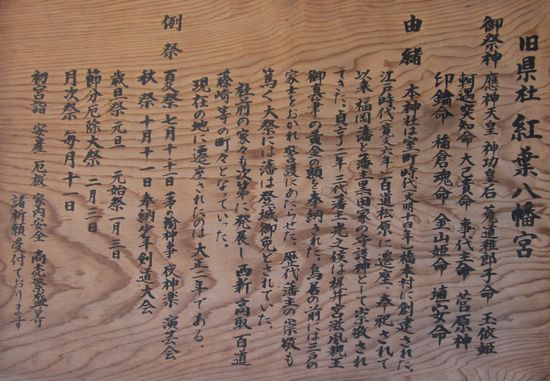 旧県社 紅葉八幡宮
御祭神 應神天皇 神功皇后 菟道稚郎子命 玉依姫
軻遇突知命 大己貴命 事代主命 菅原神
印鑰命 稲倉魂命 金山姫命 埴安命
由緒 本神社は室町時代(文明十四年)橋本村に創建された。
江戸時代(寛文六年)百道松原に遷座、奉祀されて
以来、福岡藩と藩主黒田家の守護神として崇敬され
てきた。貞享二年、三代藩主光之侯は梶井宮滋胤親王
御真筆の黄金の額を奉納された。鳥居の前には三戸の
家士をおかれ警護にあたらせた。歴代藩主の崇敬も
篤く大祭には藩は登城御免とされていた。
社前の家々も次第に発展し西新 高取 百道
藤崎等の町々となていた。
現在の地に遷座されたのは大正二年である。
例祭 夏祭 七月十・十一日 茅の輪神事 夜神楽 演芸会
秋祭 十月十一日 奉納少年剣道大会
歳旦祭 元旦 元始祭 一月三日
節分厄除大祭 二月三日
月次祭 毎月十一日
初宮詣 安産 厄祓 家内安全 商売繁盛等
諸祈願受付ております